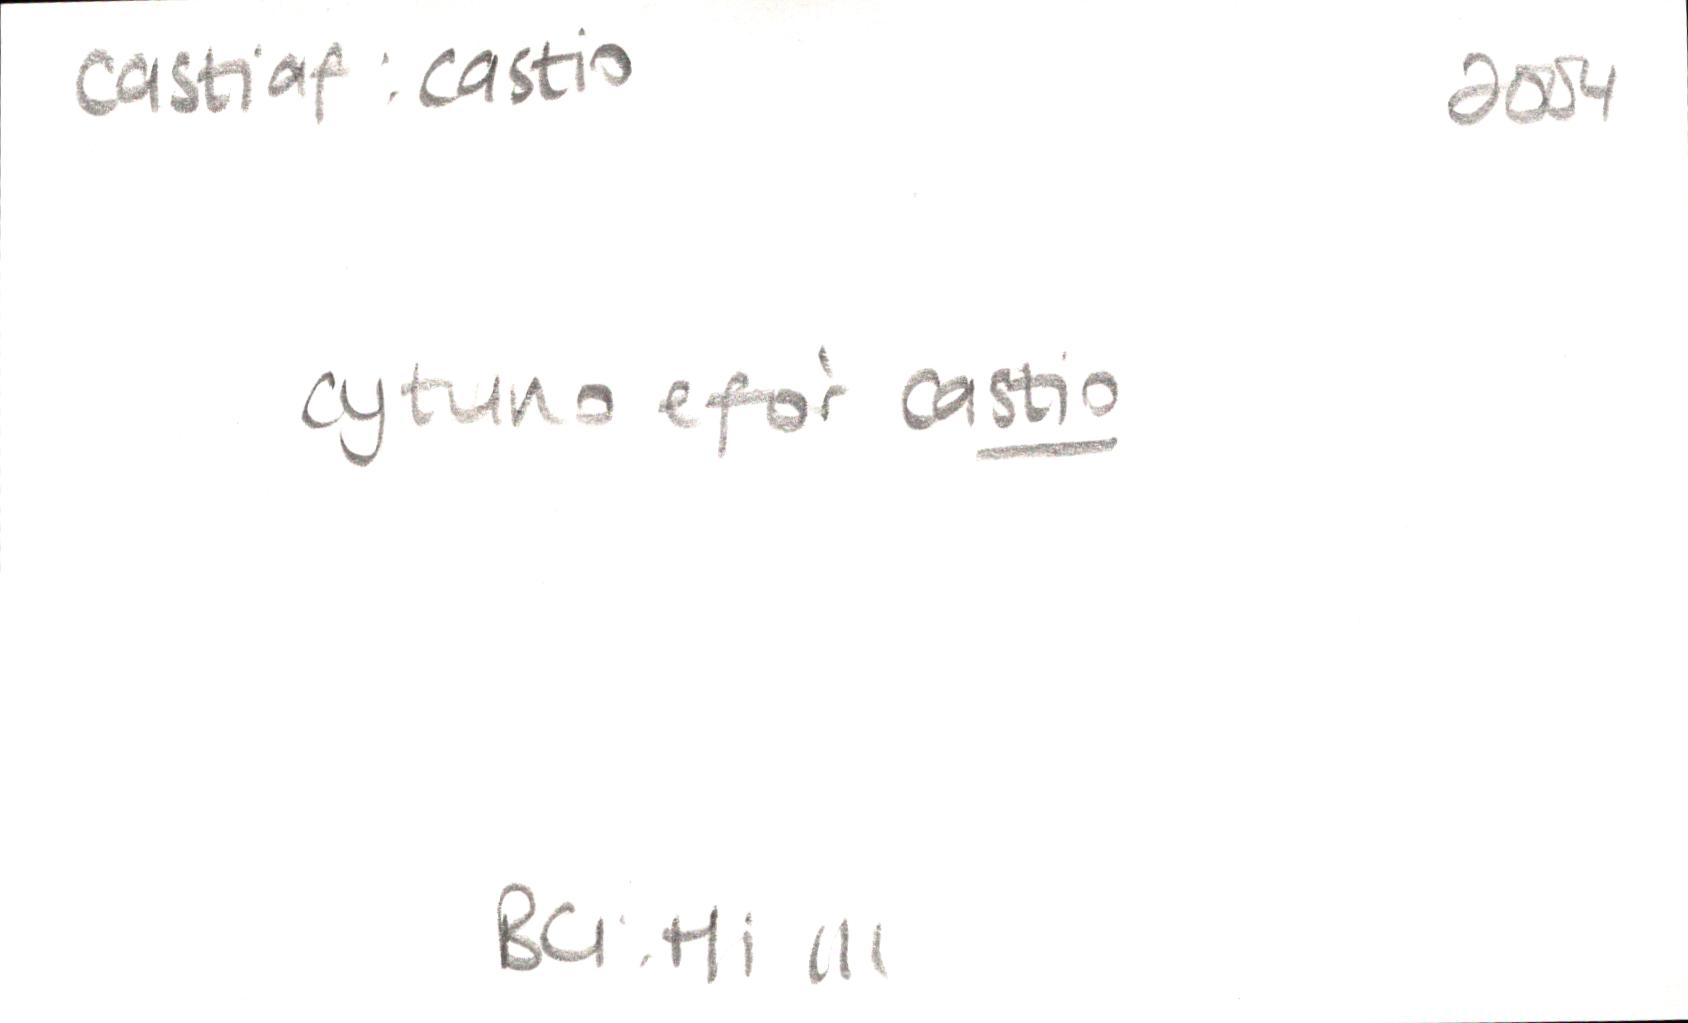 castiaf : castio 2004
cytuno efo'r castio
BCI: Hi 111